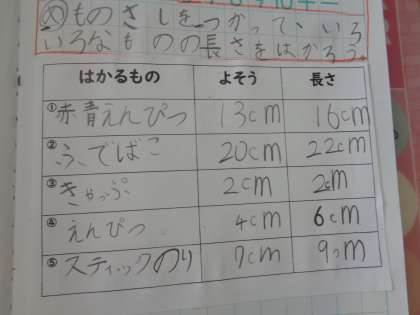 めものさしをつかって、いろ
いろなものの長さをはかろう。
はかるもの よそう 長さ
①赤青えんぴつ 13cm 16cm
②ふでばこ 20cm 22cm
③きゃっぷ 2cm 2cm
④えんぴつ 4cm 6cm
⑤スティックのり 7cm 9cm